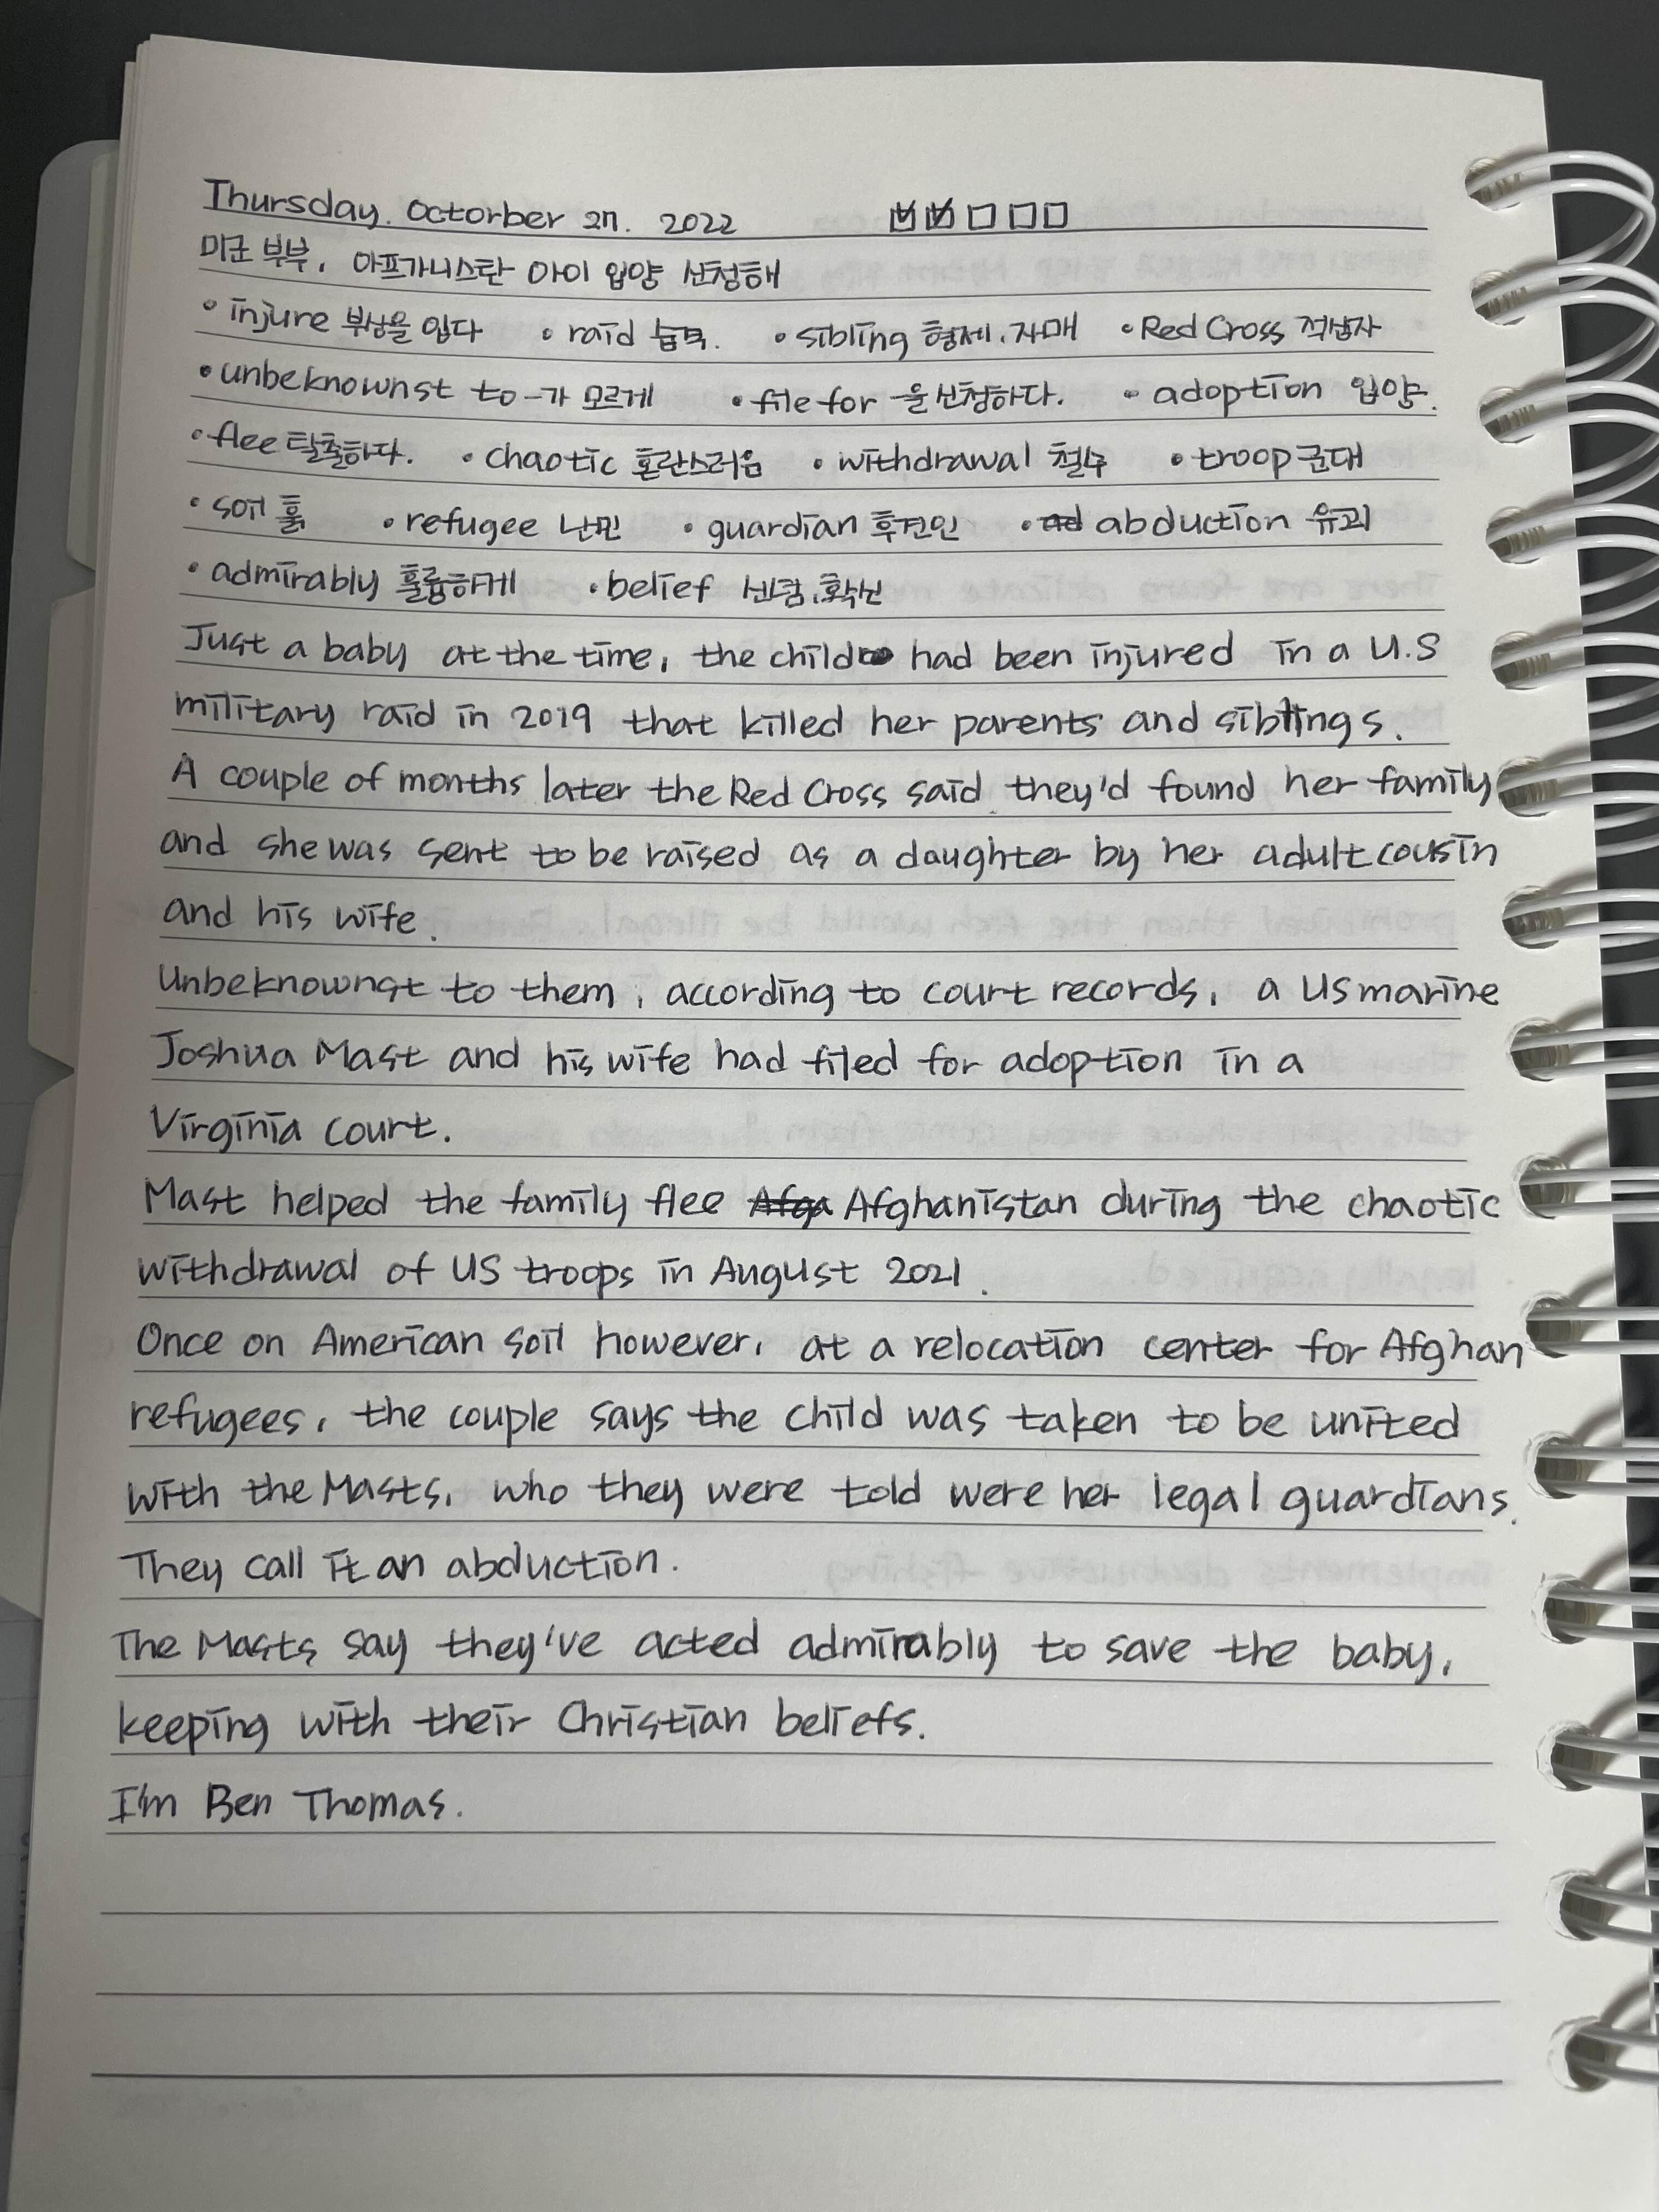 Thursday. Octorber 27. 2022 ☑☑☐☐☐
미군 부부, 아프가니스탄 아이 입양 신청해
• injure 부상을 입다 • raid 습격. • sibling 형제,자매 • Red Cross 적십자
• unbeknownst to ~가 모르게 • file for 을 신청하다. • adoption 입양.
• flee 탈출하다. • chaotic 혼란스러움 • withdrawal 철수 • troop 군대
• soil 흙 • refugee 난민 • guardian 후견인 • abduction 유괴
• admirably 훌륭하게 • belief 신념,확신
Just a baby at the time, the child had been injured in a U.S
military raid in 2019 that killed her parents and siblings.
A couple of months later the Red Cross said they'd found her family
and she was sent to be raised as a daughter by her adult cousin
and his wife.
Unbeknownst to them, according to court records, a US marine
Joshua Mast and his wife had filed for adoption in a
Virginia court.
Mast helped the family flee Afga Afghanistan during the chaotic
withdrawal of US troops in August 2021.
Once on American soil however, at a relocation center for Afghan
refugees, the couple says the child was taken to be united
with the Masts, who they were told were her legal guardians.
They call it an abduction.
The Masts say they've acted admirably to save the baby,
keeping with their Christian beliefs.
I'm Ben Thomas.